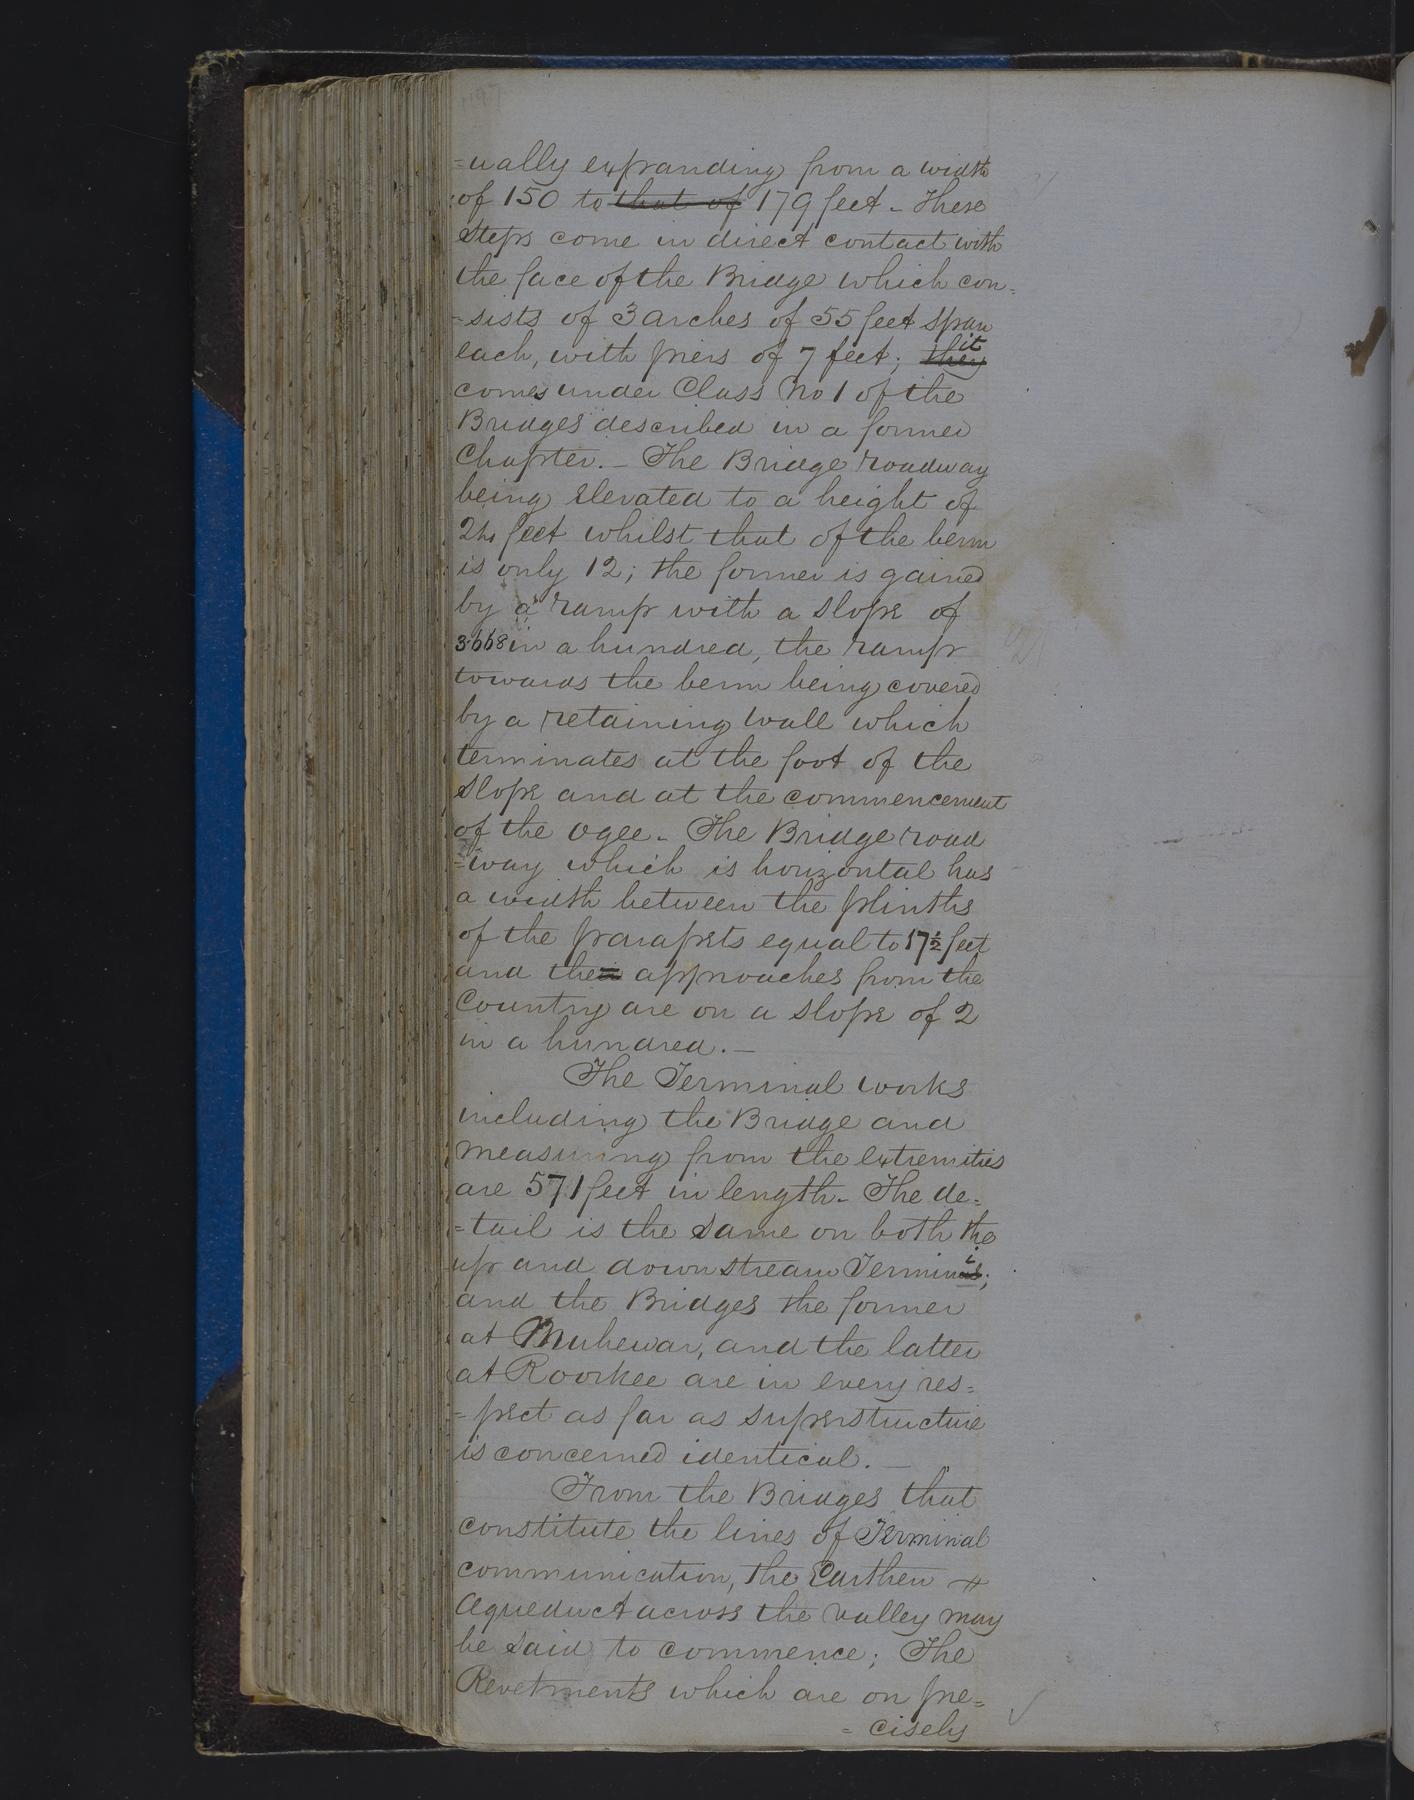 =ually expanding from a width
of 150 to that of 179 feet - These
steps come in direct contact with
the face of the Bridge which con=
=sists of 3 arches of 55 feet span
each, with piers of 7 feet; they it
comes under Class No 1 of the
Bridges described in a former
Chapter. - The Bridge roadway
being elevated to a height of
24 feet whilst that of the berm
is only 12; the former is gained
by a ramp with a slope of
3.668 in a hundred, the ramp
towards the berm being covered
by a retaining wall which
terminates at the foot of the
slope and at the commencement
of the ogee - The Bridge road
=way which is horizontal has
a width between the plinths
of the parapets equal to 17½ feet
and the approaches from the
Country are on a slope of 2
in a hundred. -
The Terminal works
including the Bridge and
measuring from the extremities
are 571 feet in length - The de=
=tail is the same on both the
up and down stream Termini;
and the Bridges the former
at Muhewar, and the latter
at Roorkee are in every res=
=pect as far as superstructure
is concerned identical. -
From the Bridges that
constitute the lines of Terminal
communication, the Earthen
Aqueduct across the valley may
be said to commence; The
Revetments which are on pre=
=cisely